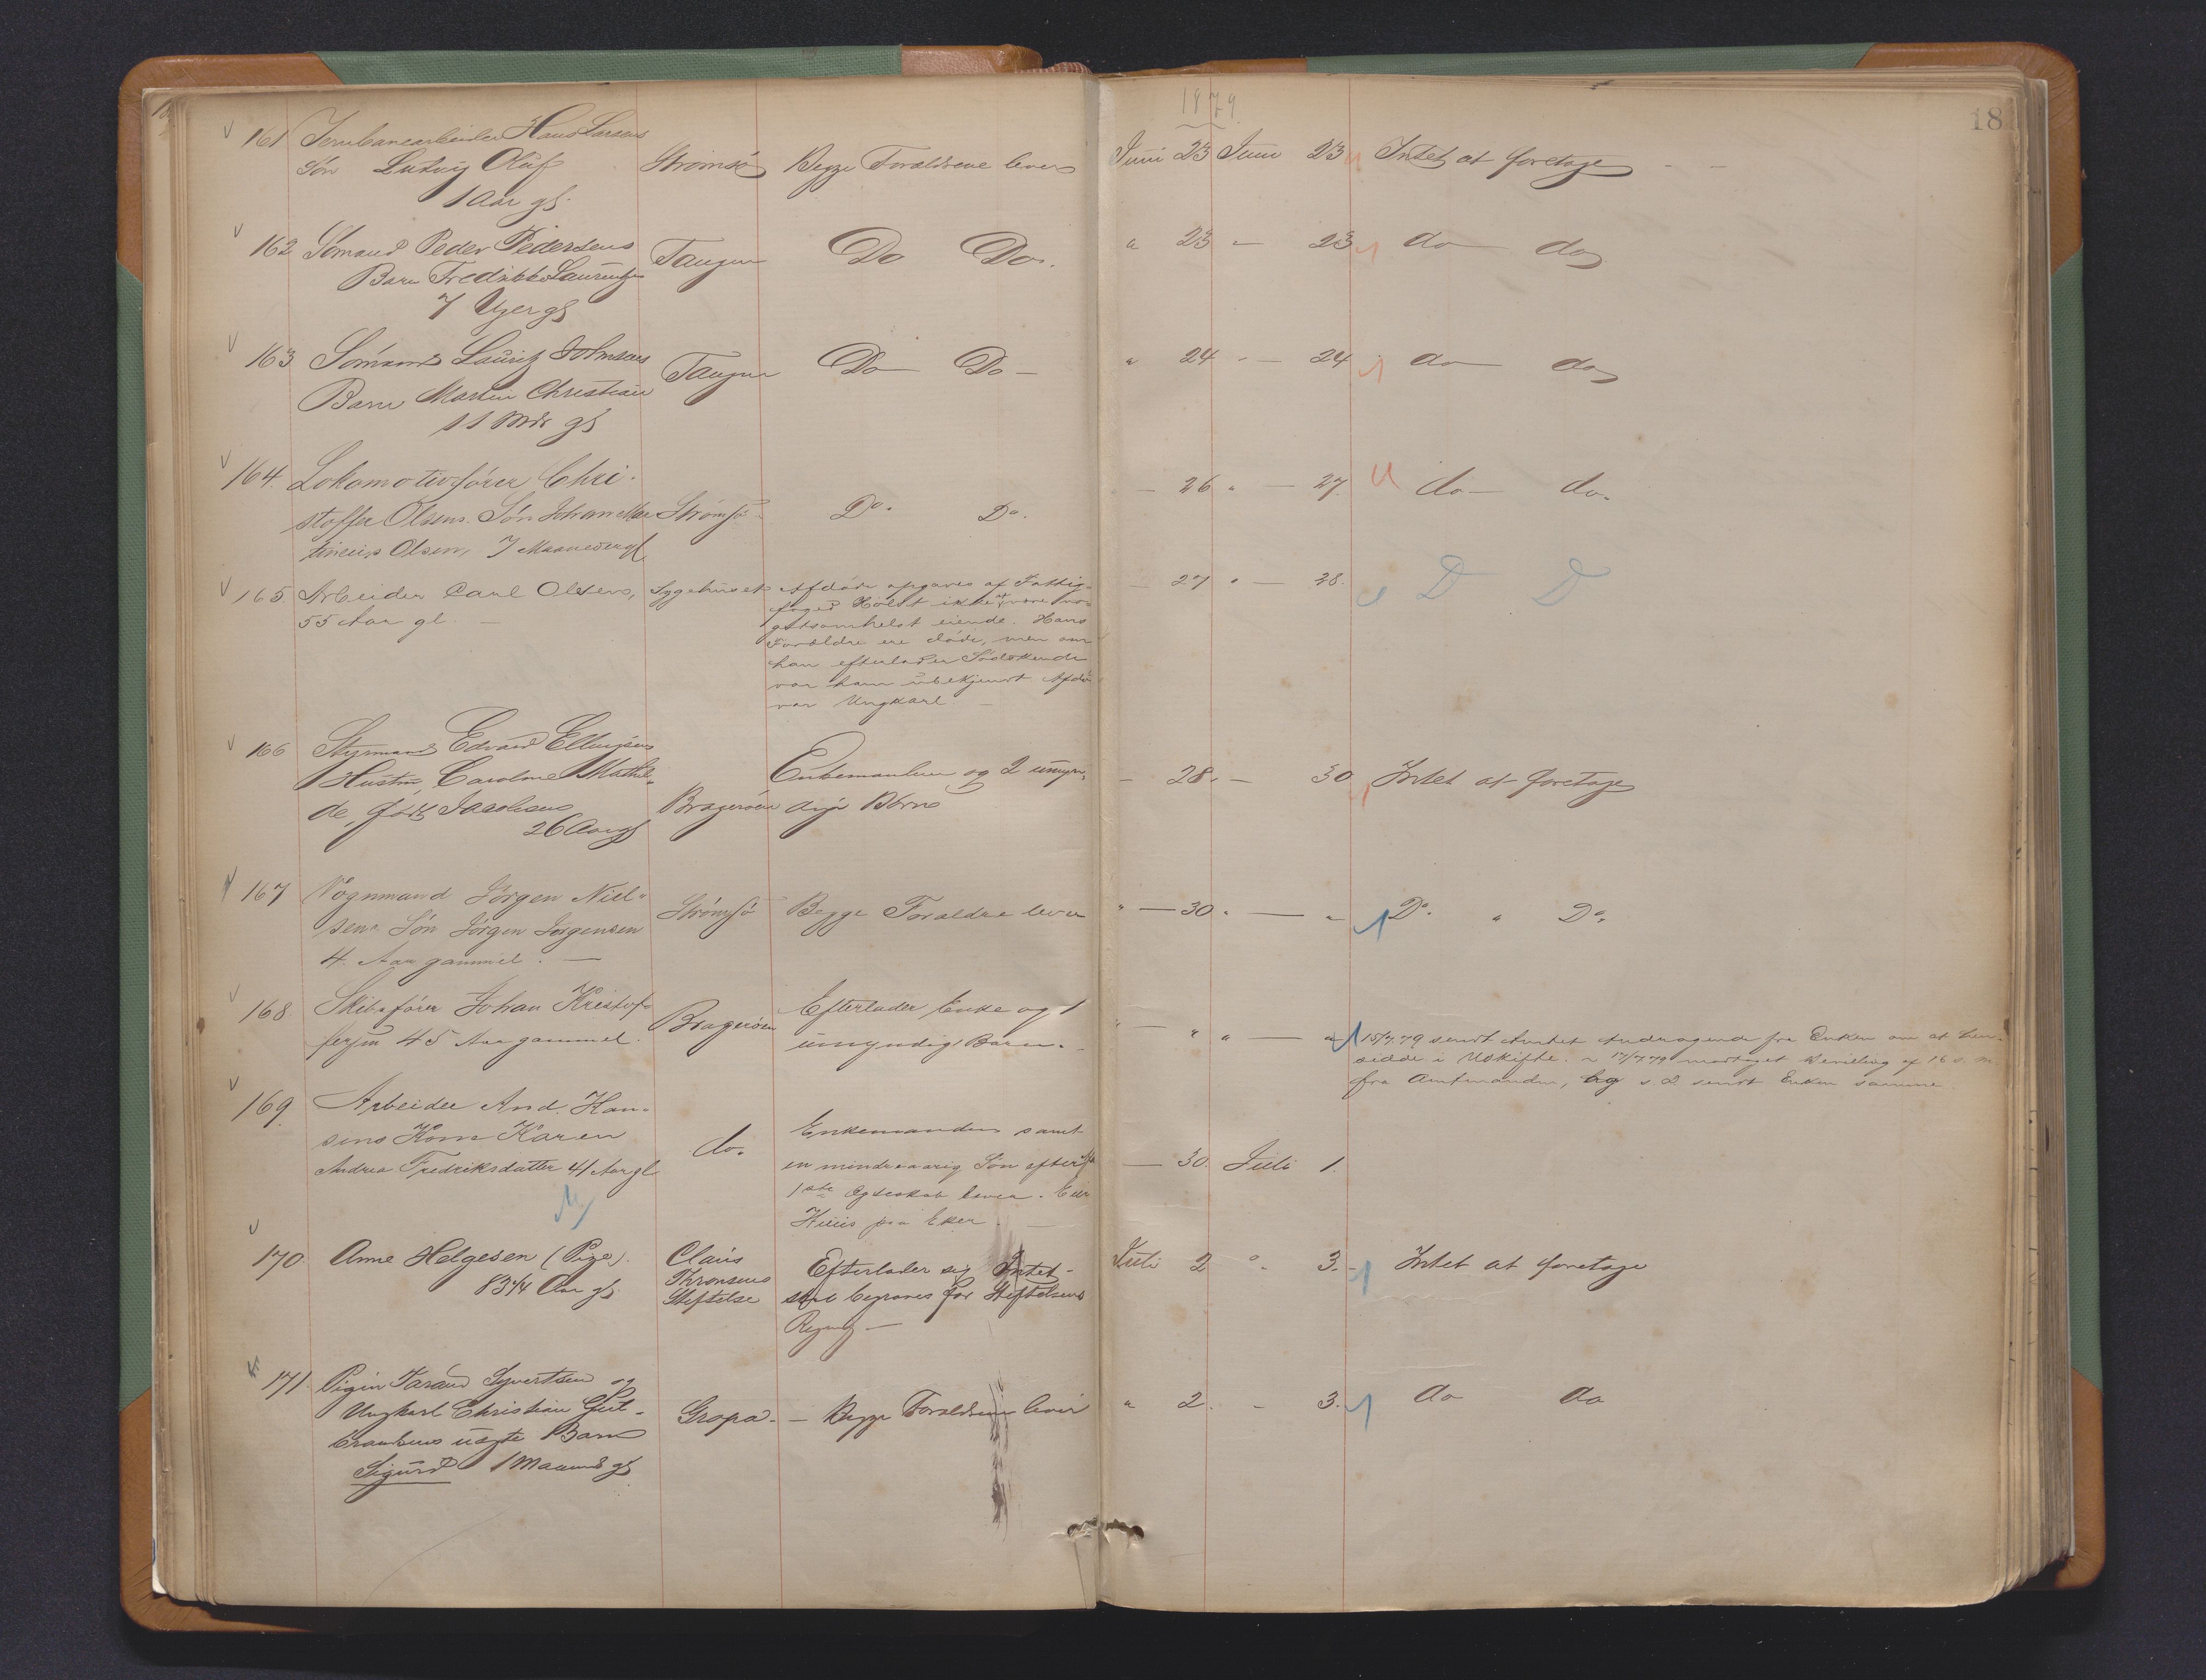 1879
18
161 Jernbanearbeider Hans Larsens
Søn Ludvig Oluf
1 Aar gl.
Strømsø
Begge Forældrene lever
Juni 23 Juni 23 Intet at foretage
162 Sømand Peder Pedersens
Barn Fredrikke Laurentze
7 Uger gl
Tangen
Do Do.
" 23 " 23 do do
163 Sømand Lauritz Johnsens
Barn Martin Christian
11 Mdr gl
Tangen
Do Do
" 24 " 24 do do
164. Lokomotivfører Chri-
stoffer Olsens Søn Johan Mar
tinius Olsen, 7 Maaneder gl
Strømsø
Do. Do.
— 26 " — 27. do — do.
165. Arbeider Carl Olsen,
55 Aar gl. —
Sygehuset
Afdøde opgaves af Fattig-
foged Holst ikke at være no-
getsomhelst eiende. Hans
Forældre ere døde, men om
han efterlader Sødskende
var ham ubekjendt. Afdø
var Ungkarl. —
— 27 " — 28. D D
166 Styrmand Edvard Ellingsens
Hustru, Caroline Mathil-
de, født Jacobsen
26 Aar gl
Bragerøen
Enkemanden og 2 umyn-
dige Børn
— 28. — 30 Intet at foretage
167 Vognmand Jørgen Niel-
sens Søn Jørgen Jørgensen
4. Aar gammel. —
Strømsø
Begge Forældre lever
" — 30 " — " Do. " Do.
168. Skibsfører Johan Kristof-
fersen 45 Aar gammel.
Bragerøen
Efterlader Enke og 1
umyndigt Barn.
" — " " — " 15/7.79 sendt Amtet Andragende fra Enken om at hen-
sidde i Uskifte. " 17/7.79 modtaget Bevilling af 16 s. M.
fra Amtmanden, og s. D. sendt Enken samme
169. Arbeider And. Han-
sens Kone Karen
Andrea Fredriksdatter 41 Aar gl
do.
Enkemanden samt
en mindreaarig Søn efter
1ste Egteskab lever. Eier
Huus paa Eker. —
— 30. Juli 1.
170 Anne Helgesen (Pige).
83 1/4 Aar gl.
Claus
Thronsens
Stiftelse
Efterlader sig Intet-
skal begraves for Stiftelsens
Regning —
Juli 2 " 3. Intet at foretage
171. Pigen Syvertsen og
Ungkarl Christian Gul-
brandsens uægte Barn
Sigurd 1 Maaned gl
Gropa. — Begge Forældrene lever
" 2. " 3. do do